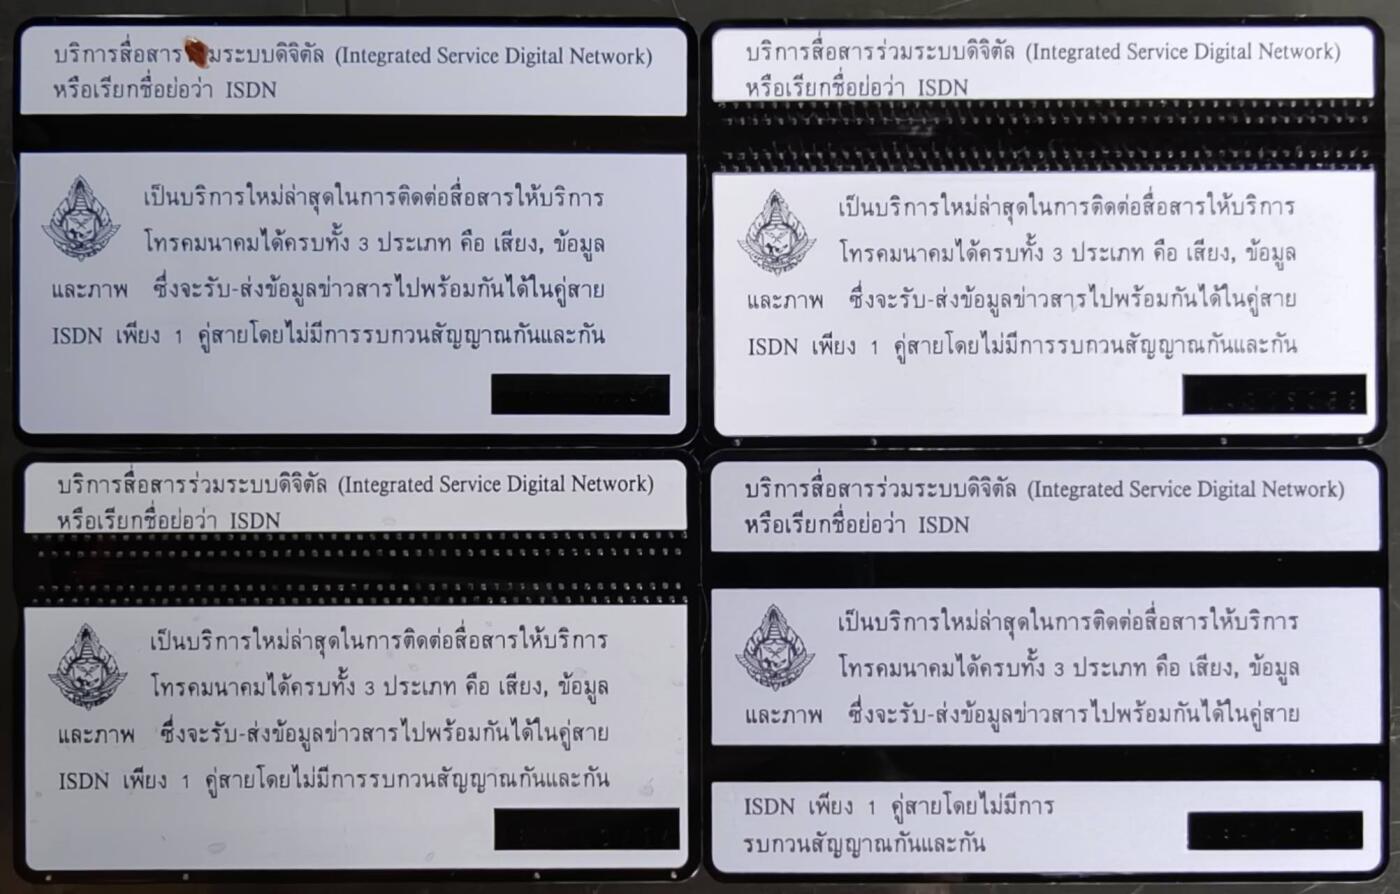 บริการสื่อสาร มระบบดิจิตัล (Integrated Service Digital Network)
หรือเรียกชื่อย่อว่า ISDN
เป็นบริการใหม่ล่าสุดในการติดต่อสื่อสารให้บริการ
โทรคมนาคมได้ครบทั้ง 3 ประเภท คือ เสียง, ข้อมูล
และภาพ ซึ่งจะรับ-ส่งข้อมูลข่าวสารไปพร้อมกันได้ในคู่สาย
ISDN เพียง 1 คู่สายโดยไม่มีการรบกวนสัญญาณกันและกัน
บริการสื่อสารร่วมระบบดิจิตัล (Integrated Service Digital Network)
หรือเรียกชื่อย่อว่า ISDN
เป็นบริการใหม่ล่าสุดในการติดต่อสื่อสารให้บริการ
โทรคมนาคมได้ครบทั้ง 3 ประเภท คือ เสียง, ข้อมูล
และภาพ ซึ่งจะรับ-ส่งข้อมูลข่าวสารไปพร้อมกันได้ในคู่สาย
ISDN เพียง 1 คู่สายโดยไม่มีการรบกวนสัญญาณกันและกัน
บริการสื่อสารร่วมระบบดิจิตัล (Integrated Service Digital Network)
หรือเรียกชื่อย่อว่า ISDN
เป็นบริการใหม่ล่าสุดในการติดต่อสื่อสารให้บริการ
โทรคมนาคมได้ครบทั้ง 3 ประเภท คือ เสียง, ข้อมูล
และภาพ ซึ่งจะรับ-ส่งข้อมูลข่าวสารไปพร้อมกันได้ในคู่สาย
ISDN เพียง 1 คู่สายโดยไม่มีการรบกวนสัญญาณกันและกัน
บริการสื่อสารร่วมระบบดิจิตัล (Integrated Service Digital Network)
หรือเรียกชื่อย่อว่า ISDN
เป็นบริการใหม่ล่าสุดในการติดต่อสื่อสารให้บริการ
โทรคมนาคมได้ครบทั้ง 3 ประเภท คือ เสียง, ข้อมูล
และภาพ ซึ่งจะรับ-ส่งข้อมูลข่าวสารไปพร้อมกันได้ในคู่สาย
ISDN เพียง 1 คู่สายโดยไม่มีการ
รบกวนสัญญาณกันและกัน